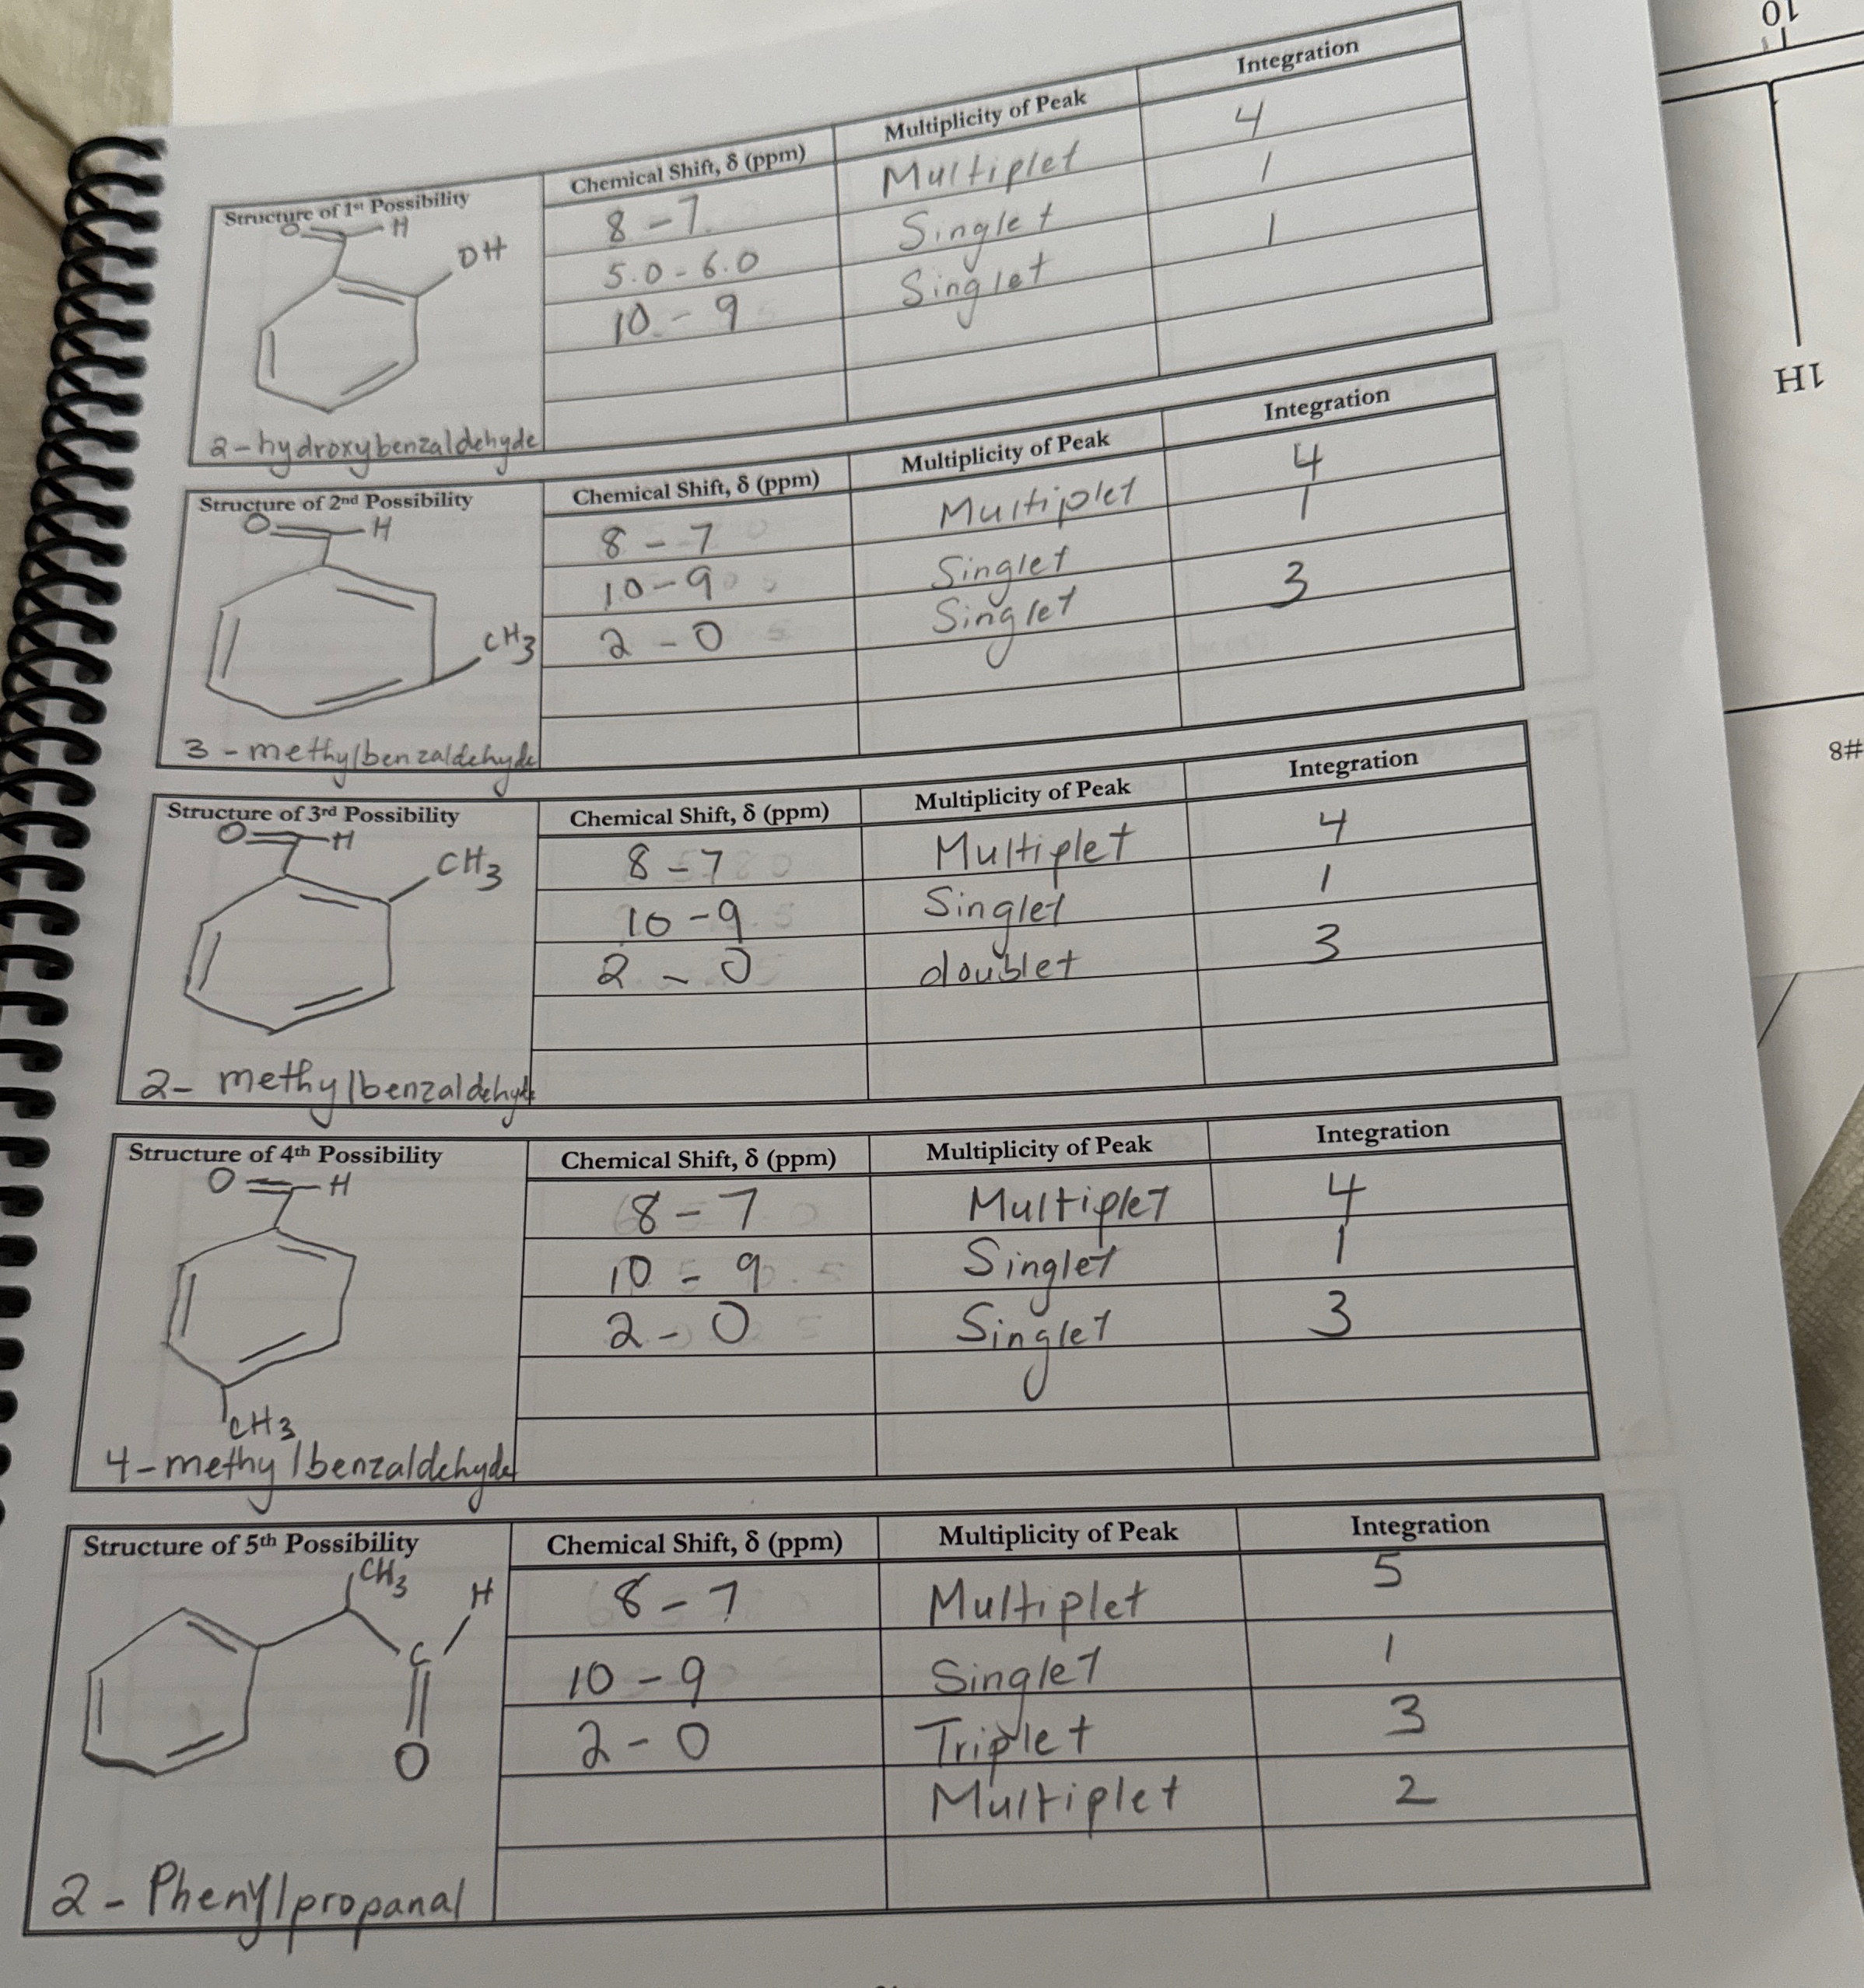 Structure of 1st Possibility
Chemical Shift, δ (ppm)
Multiplicity of Peak
Integration
O H
OH
8-7
Multiplet
4
5.0-6.0
Singlet
1
10-9
Singlet
1
2-hydroxybenzaldehyde
Structure of 2nd Possibility
Chemical Shift, δ (ppm)
Multiplicity of Peak
Integration
O H
CH3
8-7
Multiplet
4
10-9
Singlet
1
2-0
Singlet
3
3-methylbenzaldehyde
Structure of 3rd Possibility
Chemical Shift, δ (ppm)
Multiplicity of Peak
Integration
O H
CH3
8-7
Multiplet
4
10-9
Singlet
1
2-0
doublet
3
2-methylbenzaldehyde
Structure of 4th Possibility
Chemical Shift, δ (ppm)
Multiplicity of Peak
Integration
O H
8-7
Multiplet
4
10-9
Singlet
1
2-0
Singlet
3
CH3
4-methylbenzaldehyde
Structure of 5th Possibility
Chemical Shift, δ (ppm)
Multiplicity of Peak
Integration
CH3
H
C
O
8-7
Multiplet
5
10-9
Singlet
1
2-0
Triplet
3
Multiplet
2
2-Phenylpropanal
10
1H
#8